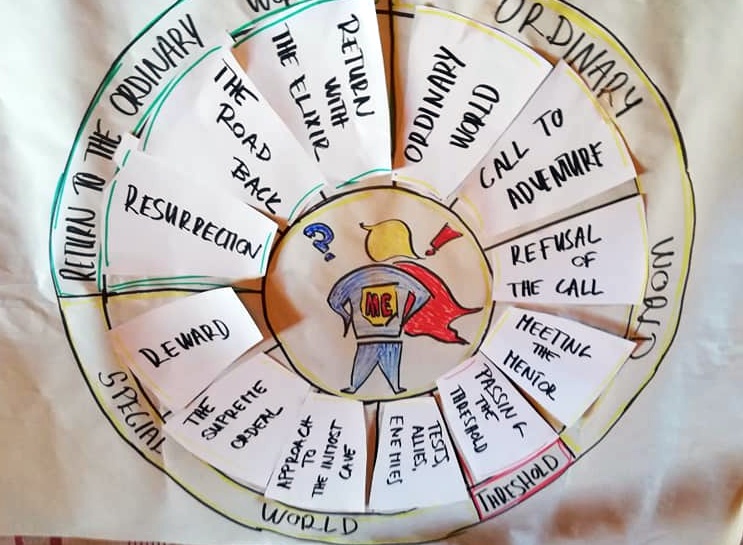 ORDINARY
WORLD
ORDINARY
WORLD
CALL TO
ADVENTURE
REFUSAL
OF
THE CALL
MEETING
THE
MENTOR
PASSING
THE
THRESHOLD
THRESHOLD
TESTS,
ALLIES,
ENEMIES
APPROACH
TO
THE INMOST
CAVE
THE
SUPREME
ORDEAL
REWARD
SPECIAL
WORLD
RESURRECTION
THE
ROAD
BACK
RETURN
WITH
THE ELIXIR
RETURN TO THE ORDINARY
? !
ME